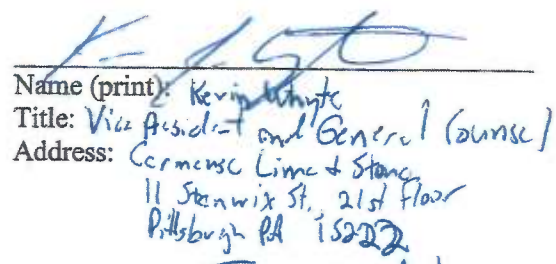 Name (print): Kevin Whyte
Title: Vice President and General Counsel
Address: Carmeuse Lime & Stone
11 Stanwix St. 21st Floor
Pittsburgh PA 15222